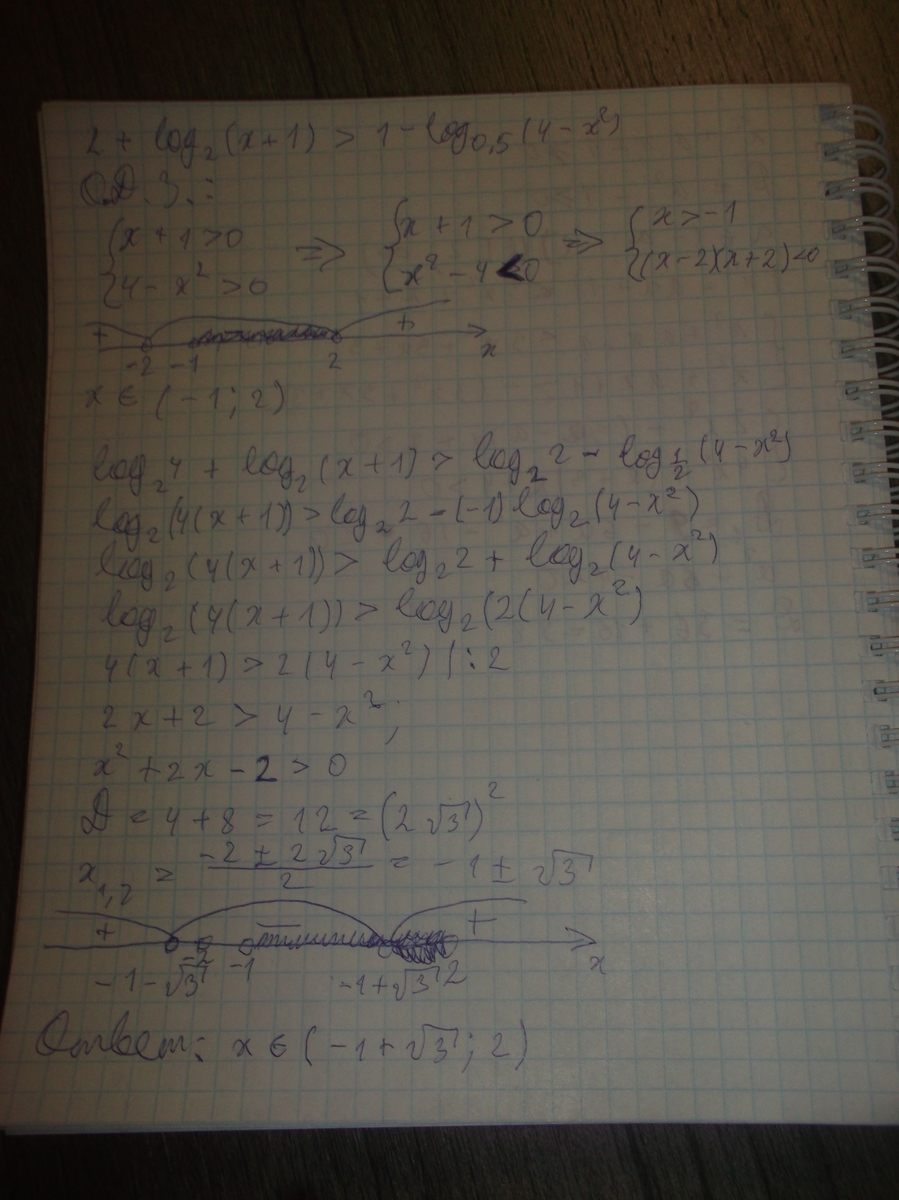 2 + log₂(x+1) > 1 - log₀,₅(4-x²)
О.Д.З.:
{x+1>0 {4-x²>0 => {x+1>0 {x²-4<0 => {x>-1 {(x-2)(x+2)<0
+ + x
-2 -1 2
x ∈ (-1; 2)
log₂4 + log₂(x+1) > log₂2 - log_{1/2}(4-x²)
log₂(4(x+1)) > log₂2 - (-1)log₂(4-x²)
log₂(4(x+1)) > log₂2 + log₂(4-x²)
log₂(4(x+1)) > log₂(2(4-x²)
4(x+1) > 2(4-x²) |:2
2x+2 > 4-x²;
x²+2x-2 > 0
D = 4+8 = 12 = (2√3)²
x₁,₂ = (-2±2√3)/2 = -1±√3
+ - + x
-1-√3 -2 -1 -1+√3 2
Ответ: x ∈ (-1+√3; 2)